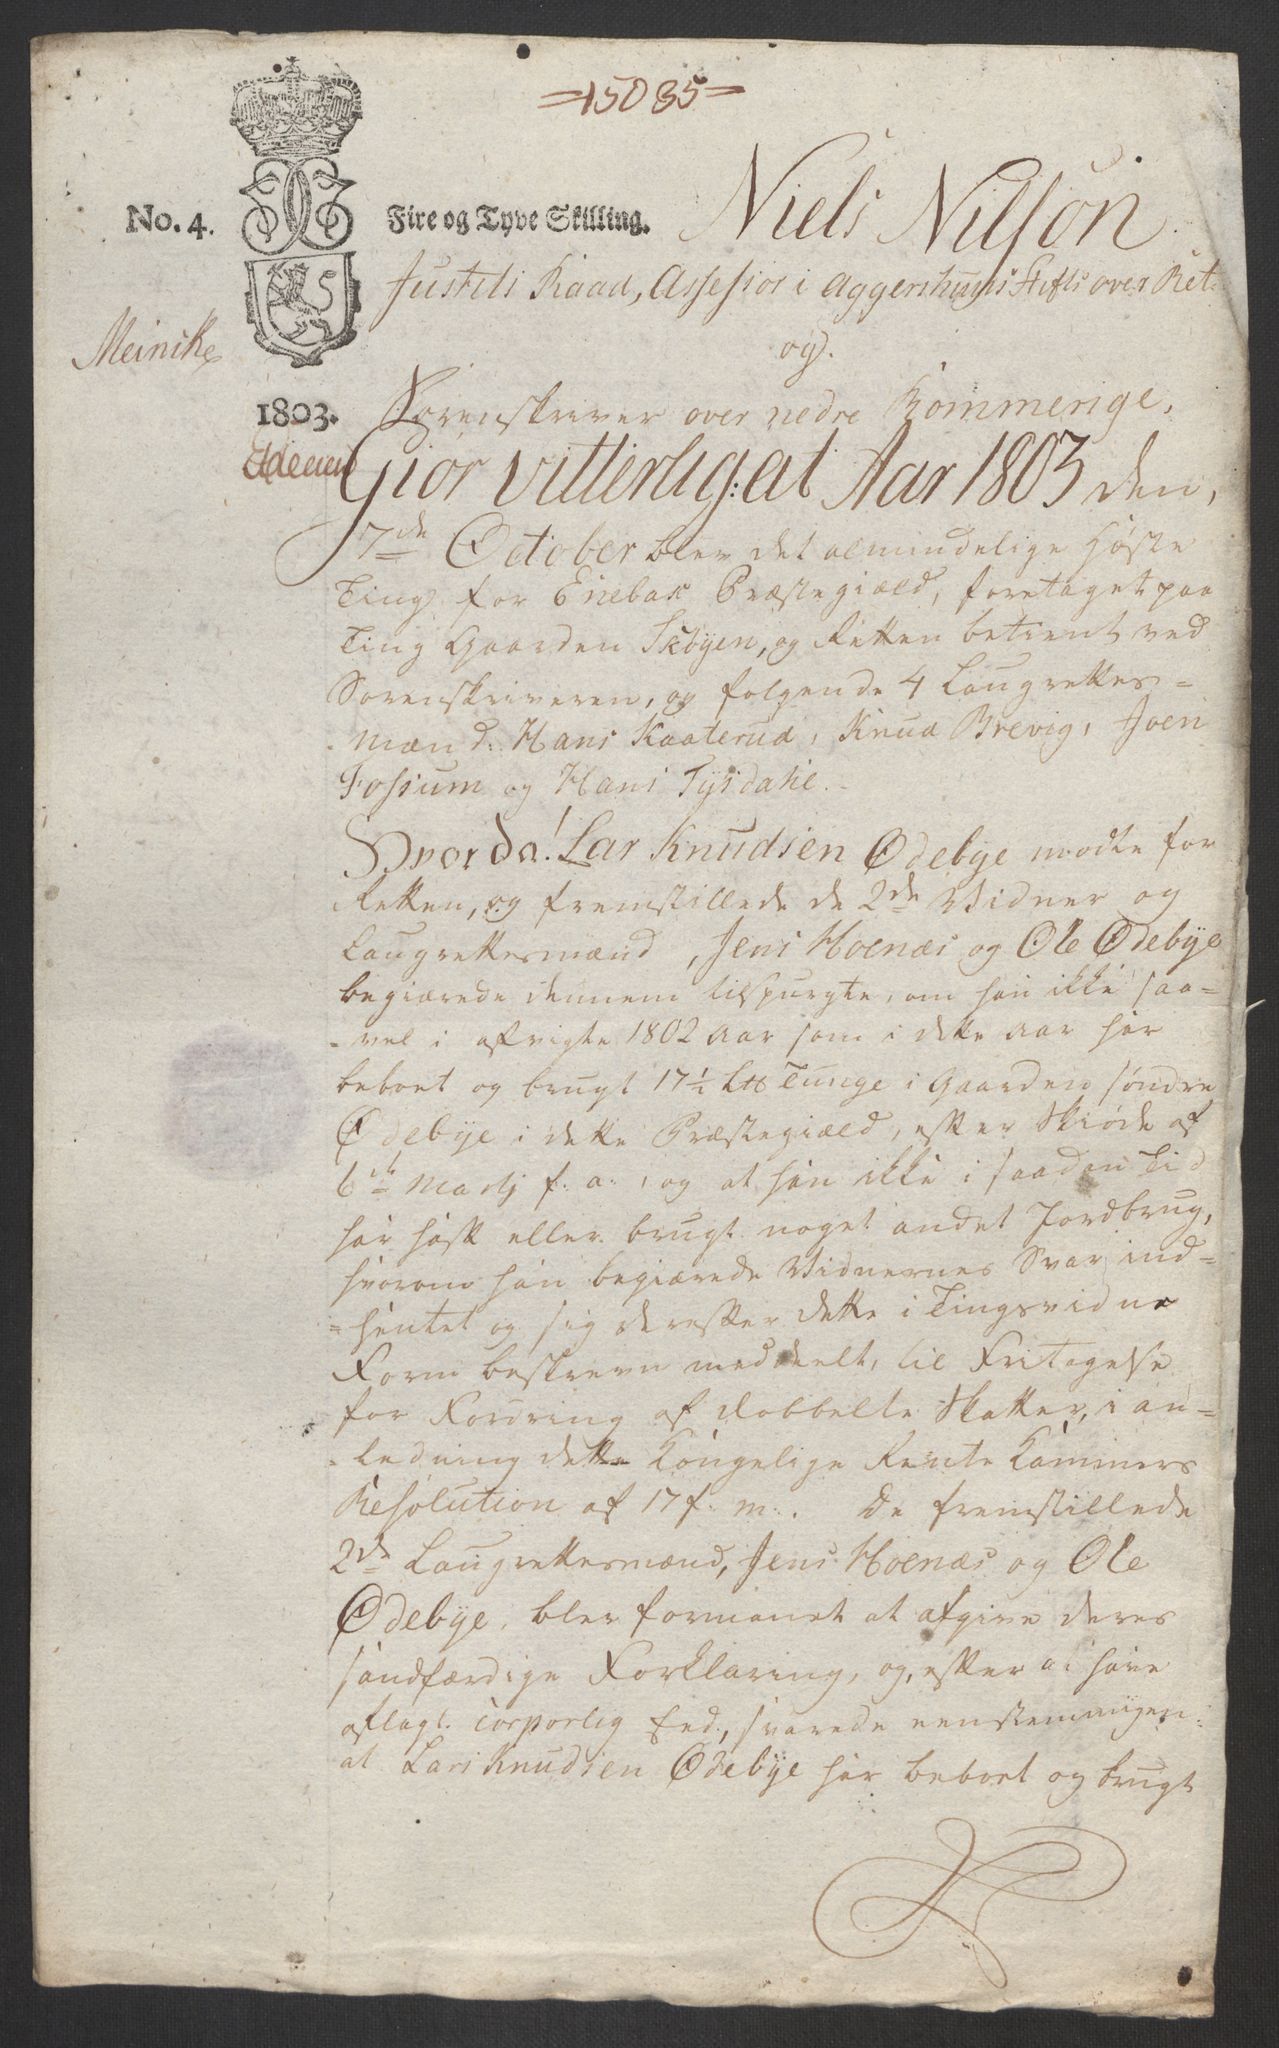 =15035=
No. 4.
Fire og Tyve Skilling.
Niels Nilson
Justits Raad, Assessor i Aggershuus Stifts over Ret.
og.
Meinike
1803.
Sorenskriver over nedre Rommerige,
Giør vitterlig: at Aar 1803 den,
7de October blev det almindelige Høste
Ting for Enebak Præstegiæld, foretaget paa
Ting Gaarden Skøyen, og Retten betient ved
Sorenskriveren, og følgende 4 Laugrettes-
-mænd: Hans Kaaterud, Knud Brevig, Joen
Fossum og Hans Tysdahl.
Hvor da! Lar Knudsen Ødebye mødte for
Retten, og fremstillede de 2de Vidner og
Laugrettesmænd, Jens Hoenæs og Ole Ødebye
begiærede dennem tilspurgte, om han ikke saa-
-vel i afvigte 1802 Aar som i dette Aar har
beboet og brugt 17½ L℔ Tunge i Gaarden søndre
Ødebye i dette Præstegiæld, efter Skiøde af
6te Martj f. a., og at han ikke i saadan Tid
har havt eller brugt noget andet Jordbrug,
hvorom han begiærede Vidnernes Svar ind-
=hentet og sig derefter dette i Tingsvidne
Form beskreven meddeelt, til Fritagelse
for Fordring af dobbelte Skatter, i an-
-ledning dette Kongelige Rente Kammers
Resolution af 17 f. m. De fremstillede
2de Laugrettesmænd, Jens Hoenæs og Ole
Ødebye, blev formanet at afgive deres
sandfærdige Forklaring, og, efter at have
aflagt corporlig Eed, svarede eenstemmigen:
at Lars Knudsen Ødebye har beboet og brugt